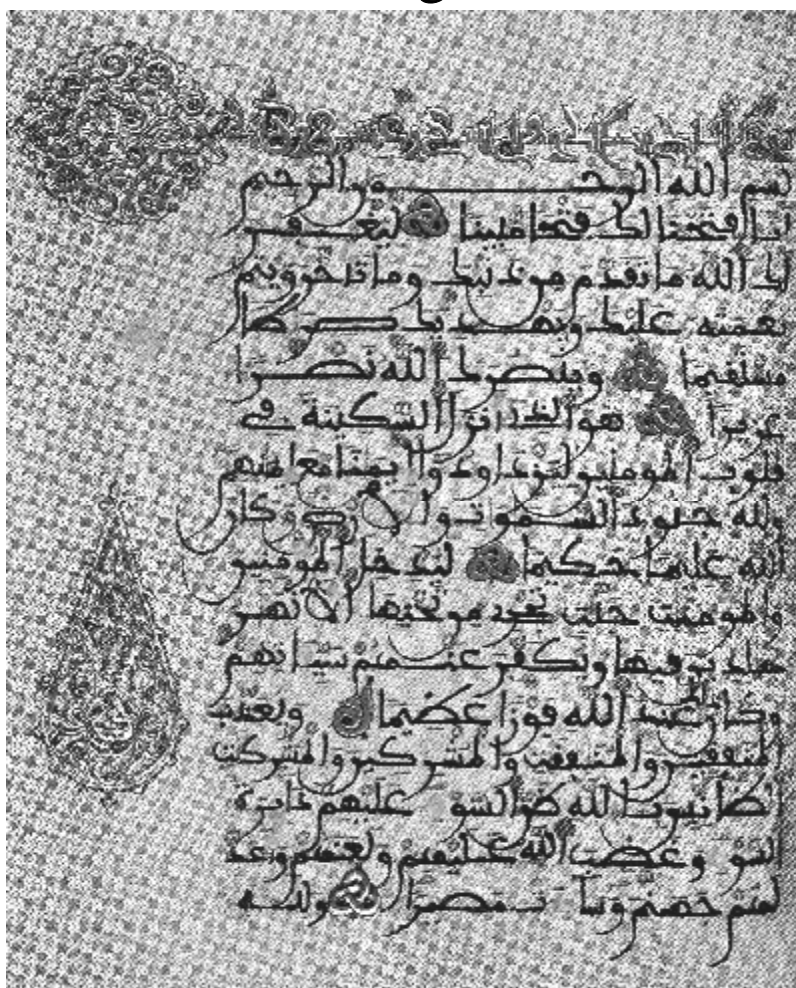 بسم الله الرحمن الرحيم
انا فتحنا لك فتحا مبينا ليغفر
لك الله ما تقدم من ذنبك وما تاخر ويتم
نعمته عليك ويهديك صرطا
مستقيما وينصرك الله نصرا
عزيزا هو الذي انزل السكينة في
قلوب المومنين ليزدادوا ايمنا مع ايمنهم
ولله جنود السموت والارض وكان
الله عليما حكيما ليدخل المومنين
والمومنت جنت تجري من تحتها الانهر
خلدين فيها ويكفر عنهم سياتهم
وكان ذلك عند الله فوزا عظيما ويعذب
المنفقين والمنفقت والمشركين والمشركت
الظانين بالله ظن السوء عليهم دايرة
السوء وغضب الله عليهم ولعنهم واعد
لهم جهنم وساءت مصيرا ولله